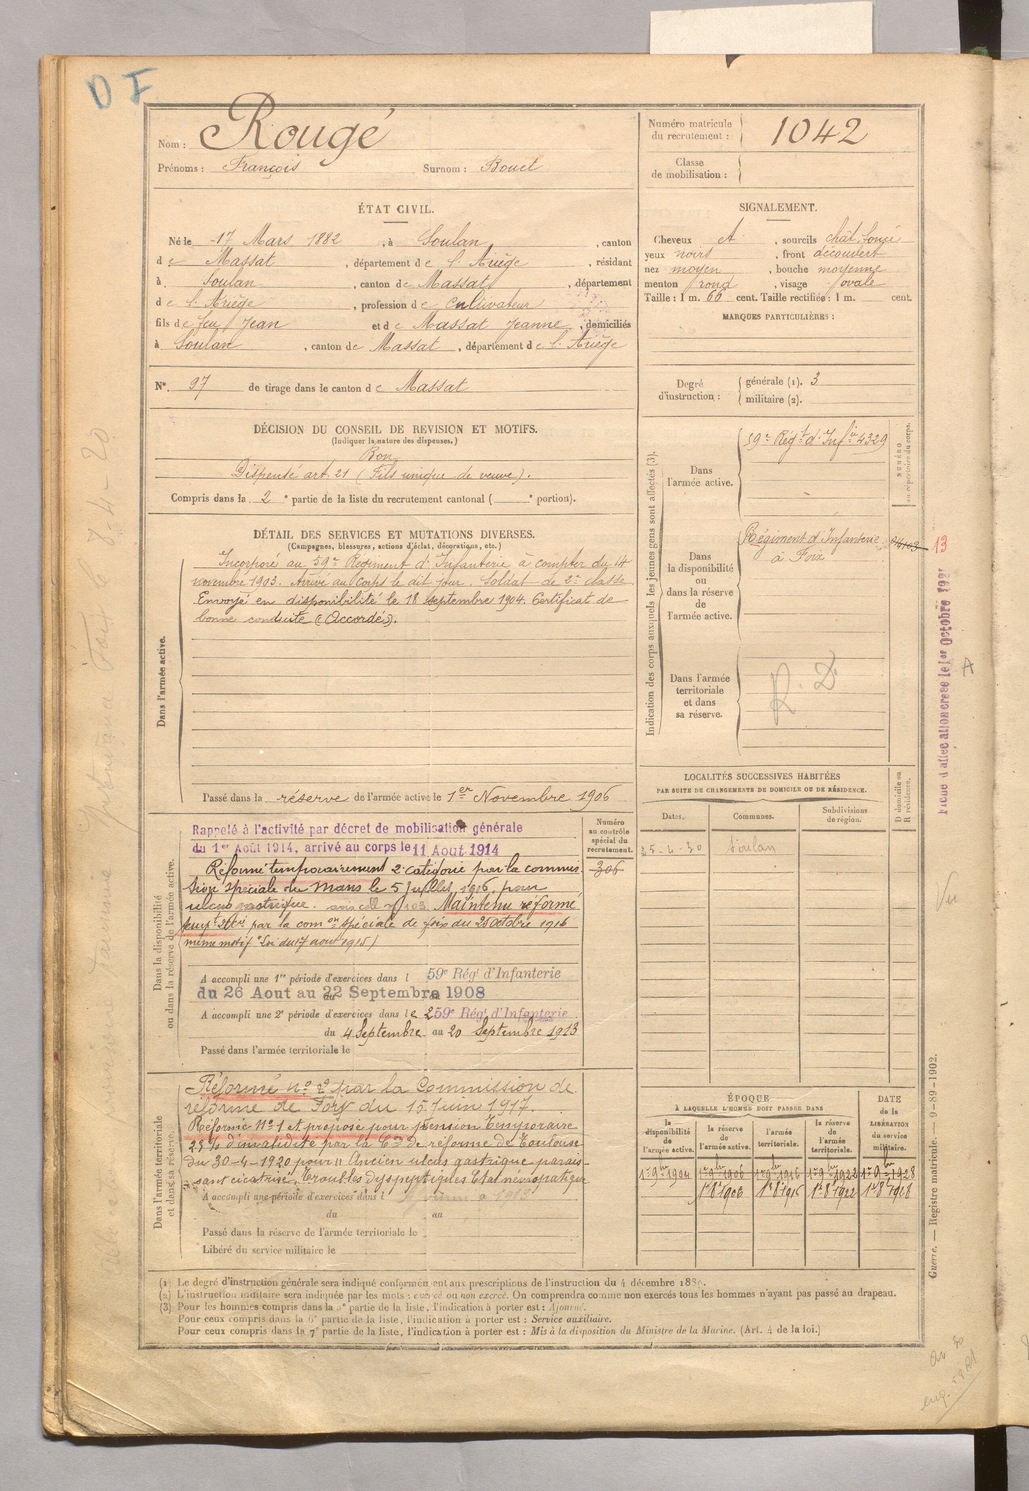 D F
Nom : Rougé
Prénoms : François Surnom : Bouet
Numéro matricule du recrutement : 1042
Classe de mobilisation :
ÉTAT CIVIL.
Né le 17 Mars 1882, à Soulan, canton
de Massat, département de l'Ariège, résidant
à Soulan, canton de Massat, département
de l'Ariège, profession de Cultivateur
fils de feu Jean et de Massat Jeanne, domiciliés
à Soulan, canton de Massat, département de l'Ariège
N° 97 de tirage dans le canton de Massat
SIGNALEMENT.
Cheveux et, sourcils chât foncé
yeux noirs, front découvert
nez moyen, bouche moyenne
menton rond, visage ovale
Taille : 1 m. 66 cent. Taille rectifiée : 1 m. cent.
MARQUES PARTICULIÈRES :
Degré d'instruction : générale (1). 3
militaire (2).
DÉCISION DU CONSEIL DE REVISION ET MOTIFS.
(Indiquer la nature des dispenses.)
Bon
Dispensé art. 21 (Fils unique de veuve).
Compris dans la 2e partie de la liste du recrutement cantonal ( e portion).
DÉTAIL DES SERVICES ET MUTATIONS DIVERSES.
(Campagnes, blessures, actions d'éclat, décorations, etc.)
Dans l'armée active.
Incorporé au 59e Régiment d'Infanterie à compter du 14
novembre 1903. Arrivé au Corps le dit jour. Soldat de 2e classe
Envoyé en disponibilité le 18 septembre 1904. Certificat de
bonne conduite (Accordé).
Passé dans la réserve de l'armée active le 1er Novembre 1906
Indication des corps auxquels les jeunes gens sont affectés (3).
NUMÉRO au répertoire du corps.
Dans l'armée active.
59e Régt d'Infie 4329
Dans la disponibilité ou dans la réserve de l'armée active.
Régiment d'Infanterie
à Foix
13
Dans l'armée territoriale et dans sa réserve.
R. D
A
LOCALITÉS SUCCESSIVES HABITÉES
PAR SUITE DE CHANGEMENTS DE DOMICILE OU DE RÉSIDENCE.
Dates. Communes. Subdivisions de région. D domicile ou R résidence.
25-6-30 Soulan
Vu
Dans la disponibilité ou dans la réserve de l'armée active.
Numéro au contrôle spécial du recrutement.
306
Rappelé à l'activité par décret de mobilisation générale
du 1er Août 1914, arrivé au corps le 11 Aout 1914
Réformé temporairement 2e catégorie par la commis
sion spéciale du Mans le 5 Juillet 1916, pour
ulcus gastrique. Maintenu réformé
par la comon spéciale de foix du 25 Octobre 1916
même motif Loi du 17 aout 1915)
A accompli une 1re période d'exercices dans l 59e Rég. d'Infanterie
du 26 Aout au 22 Septembre 1908
A accompli une 2e période d'exercices dans le 259e Rég. d'Infanterie
du 4 Septembre au 20 Septembre 1913
Passé dans l'armée territoriale le
Dans l'armée territoriale et dans sa réserve.
Réformé n° 2 par la Commission de
réforme de Foix du 15 Juin 1917.
Réformé N° 1 et proposé pour pension temporaire
25 % d'invalidité par la Con de réforme de Toulouse
du 30-4-1920 pour " Ancien ulcus gastrique parais-
sant cicatrisé, troubles dyspeptiques Etat névropatique
A accompli une période d'exercices dans l
du au
Passé dans la réserve de l'armée territoriale le
Libéré du service militaire le
ÉPOQUE
A LAQUELLE L'HOMME DOIT PASSER DANS
la disponibilité de l'armée active. la réserve de l'armée active. l'armée territoriale. la réserve de l'armée territoriale. DATE de la LIBÉRATION du service militaire.
1er 9bre 1904 1er 9bre 1906 1er 9bre 1916 1er 9bre 1922 1er 9bre 1928
1er 8bre 1906 1er 8bre 1916 1er 8bre 1922 1er 8bre 1928
(1) Le degré d'instruction générale sera indiqué conformément aux prescriptions de l'instruction du 4 décembre 1889.
(2) L'instruction militaire sera indiquée par les mots : exercé ou non exercé. On comprendra comme non exercés tous les hommes n'ayant pas passé au drapeau.
(3) Pour les hommes compris dans la 5e partie de la liste, l'indication à porter est : Ajourné.
Pour ceux compris dans la 6e partie de la liste, l'indication à porter est : Service auxiliaire.
Pour ceux compris dans la 7e partie de la liste, l'indication à porter est : Mis à la disposition du Ministre de la Marine. (Art. 4 de la loi.)
Guerre. — Registre matricule. — 9-89-1902.